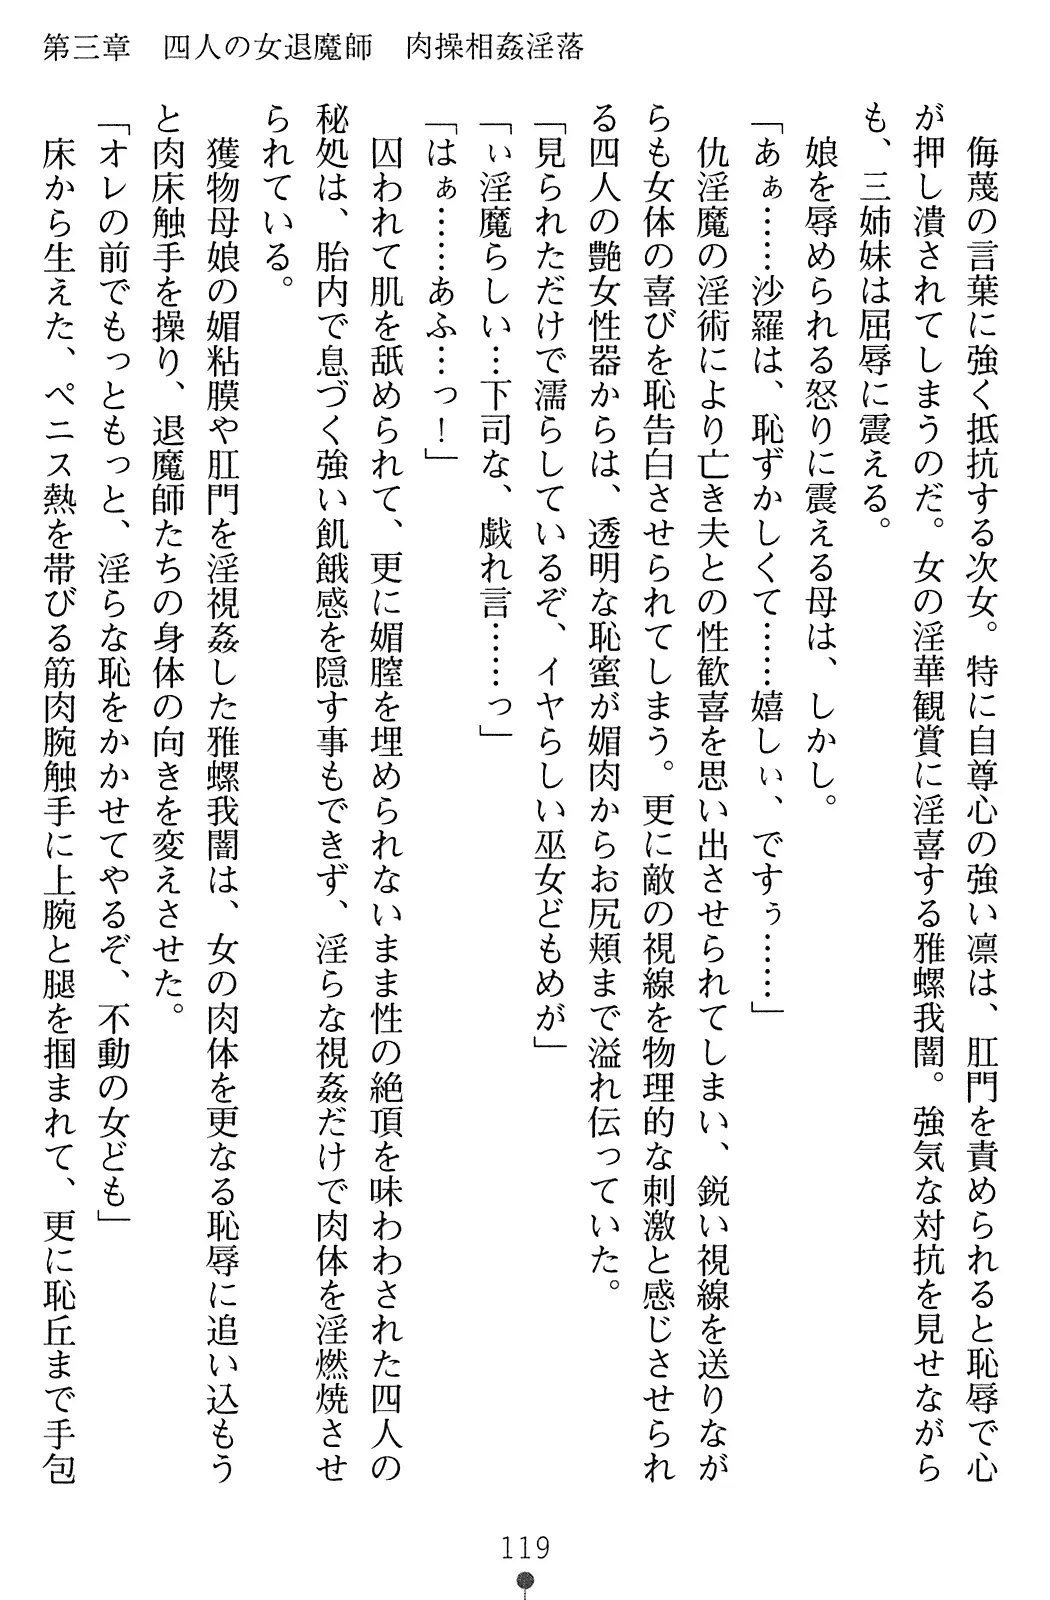 第三章　四人の女退魔師　肉操相姦淫落
侮蔑の言葉に強く抵抗する次女。特に自尊心の強い凛は、肛門を責められると恥辱で心
が押し潰されてしまうのだ。女の淫華観賞に淫喜する雅螺我闇。強気な対抗を見せながら
も、三姉妹は屈辱に震える。
娘を辱められる怒りに震える母は、しかし。
「あぁ……沙羅は、恥ずかしくて……嬉しぃ、ですぅ……」
仇淫魔の淫術により亡き夫との性歓喜を思い出させられてしまい、鋭い視線を送りなが
らも女体の喜びを恥告白させられてしまう。更に敵の視線を物理的な刺激と感じさせられ
る四人の艶女性器からは、透明な恥蜜が媚肉からお尻頬まで溢れ伝っていた。
「見られただけで濡らしているぞ、イヤらしい巫女どもめが」
「ぃ淫魔らしい…下司な、戯れ言……っ」
「はぁ……あふ…っ！」
囚われて肌を舐められて、更に媚膣を埋められないまま性の絶頂を味わわされた四人の
秘処は、胎内で息づく強い飢餓感を隠す事もできず、淫らな視姦だけで肉体を淫燃焼させ
られている。
獲物母娘の媚粘膜や肛門を淫視姦した雅螺我闇は、女の肉体を更なる恥辱に追い込もう
と肉床触手を操り、退魔師たちの身体の向きを変えさせた。
「オレの前でもっともっと、淫らな恥をかかせてやるぞ、不動の女ども」
床から生えた、ペニス熱を帯びる筋肉腕触手に上腕と腿を掴まれて、更に恥丘まで手包
119